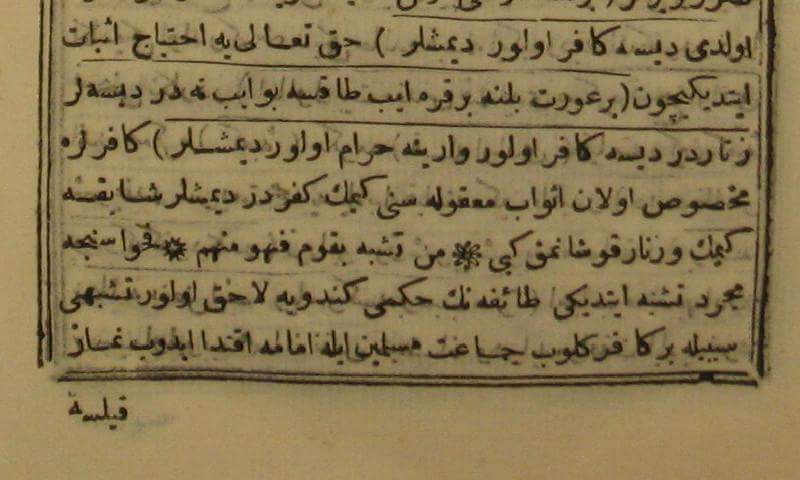 اولدى ديسه كافر اولور ديمشلر ) حق تعالى يه احتياج اثبات
ايتديكيچون(برعورت بلنه برقره ايب طاقسه بو ايب نه در ديسه لر
زناردر ديسه كافر اولور وارينه حرام اولور ديمشلر ) كافرلره
مخصوص اولان اثواب معقوله سنى كيمك كفردر ديمشلر شابقه
كيمك وزنار قوشانمق كبى ❋ من تشبه بقوم فهو منهم ❋ فحواسنجه
مجرد تشبه ايتديكى طائفه نك حكمى كندويه لاحق اولور تشبهى
سببيله بر كافر كلوب جماعت مسلمين ايله امامه اقتدا ايدوب نماز
قيلسه